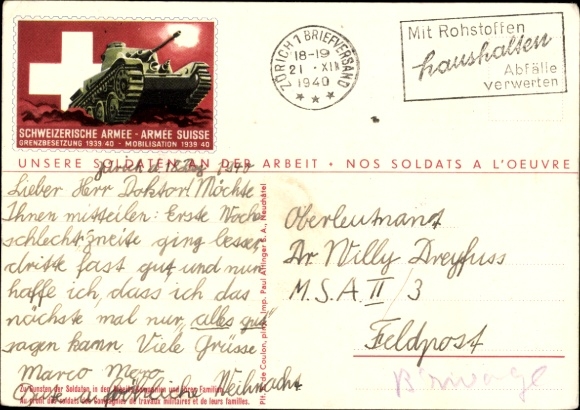 SCHWEIZERISCHE ARMEE - ARMÉE SUISSE
GRENZBESETZUNG 1939 40 - MOBILISATION 1939 40
ZÜRICH 1 BRIEFVERSAND
18-19
21. XII
1940
Mit Rohstoffen
haushalten
Abfälle
verwerten
UNSERE SOLDATEN AN DER ARBEIT • NOS SOLDATS A L'OEUVRE
Lieber Herr Doktor! Möchte
Ihnen mitteilen: Erste Woche
schlecht, zweite ging besser
dritte fast gut und nun
hoffe ich, dass ich das
nächste mal nur "alles gut"
sagen kann. Viele Grüsse
Marco Mero
Zu Gunsten der Soldaten in den und ihren Familien
Au profit des soldats des Compagnies de travaux militaires et de leurs familles.
Gute Weihnacht
de Coulon, Imp. Paul Attinger S. A., Neuchâtel
Oberleutnant
Dr Willy Dreyfuss
M.S.A. II / 3
Feldpost